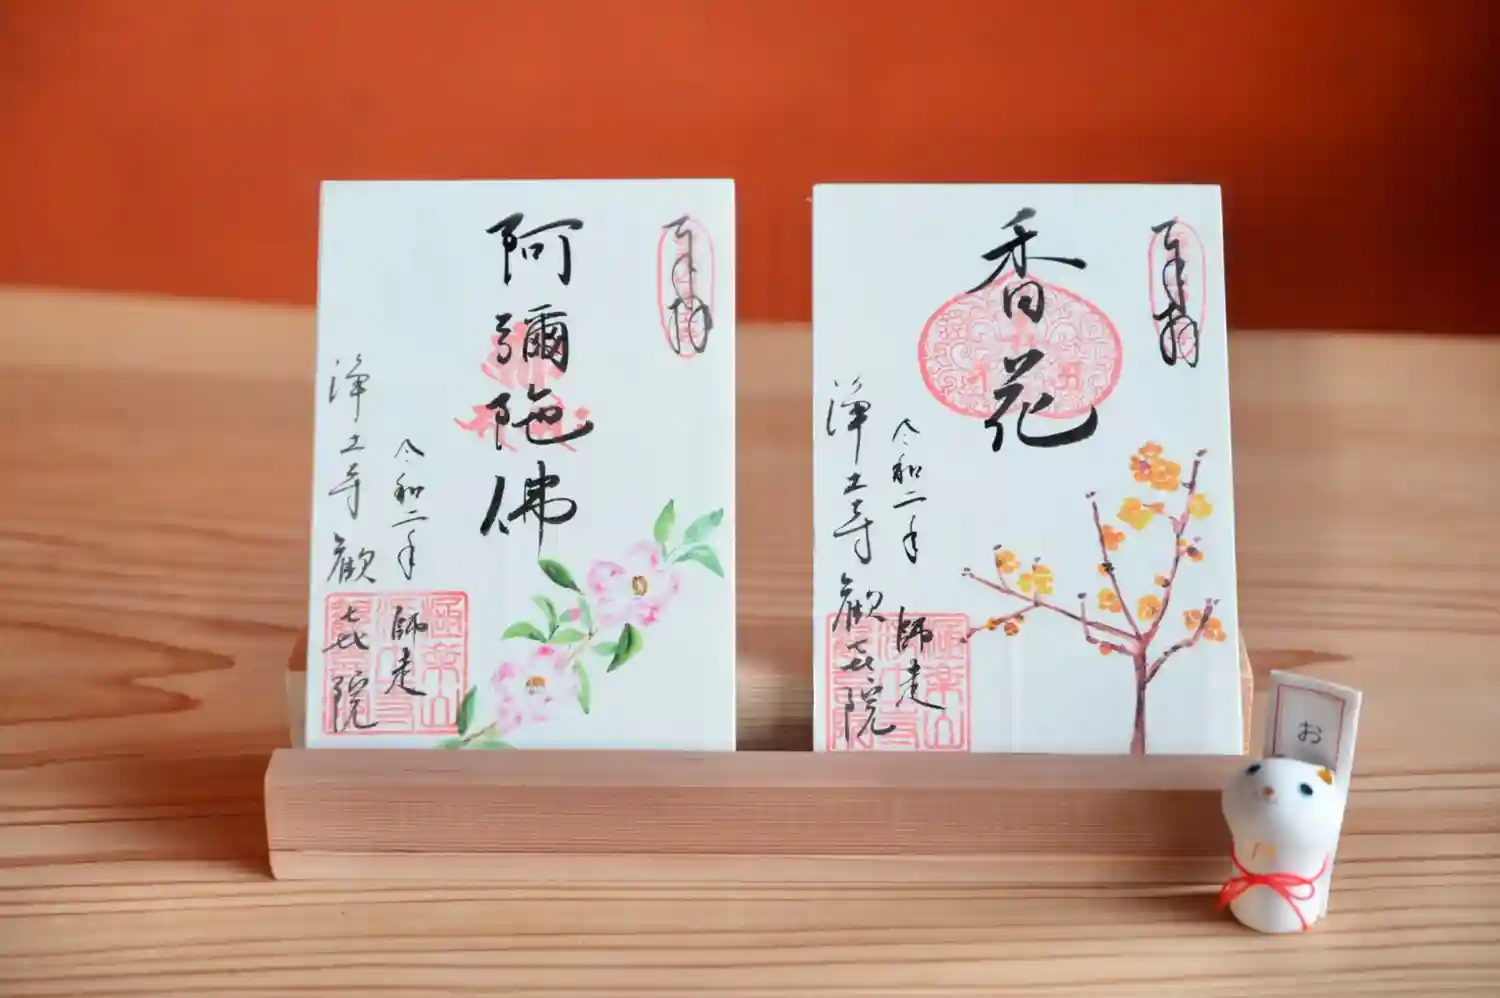 奉拝
阿彌陀佛
令和二年 師走
浄土寺 歡喜院
奉拝
香花
令和二年 師走
浄土寺 歡喜院
お